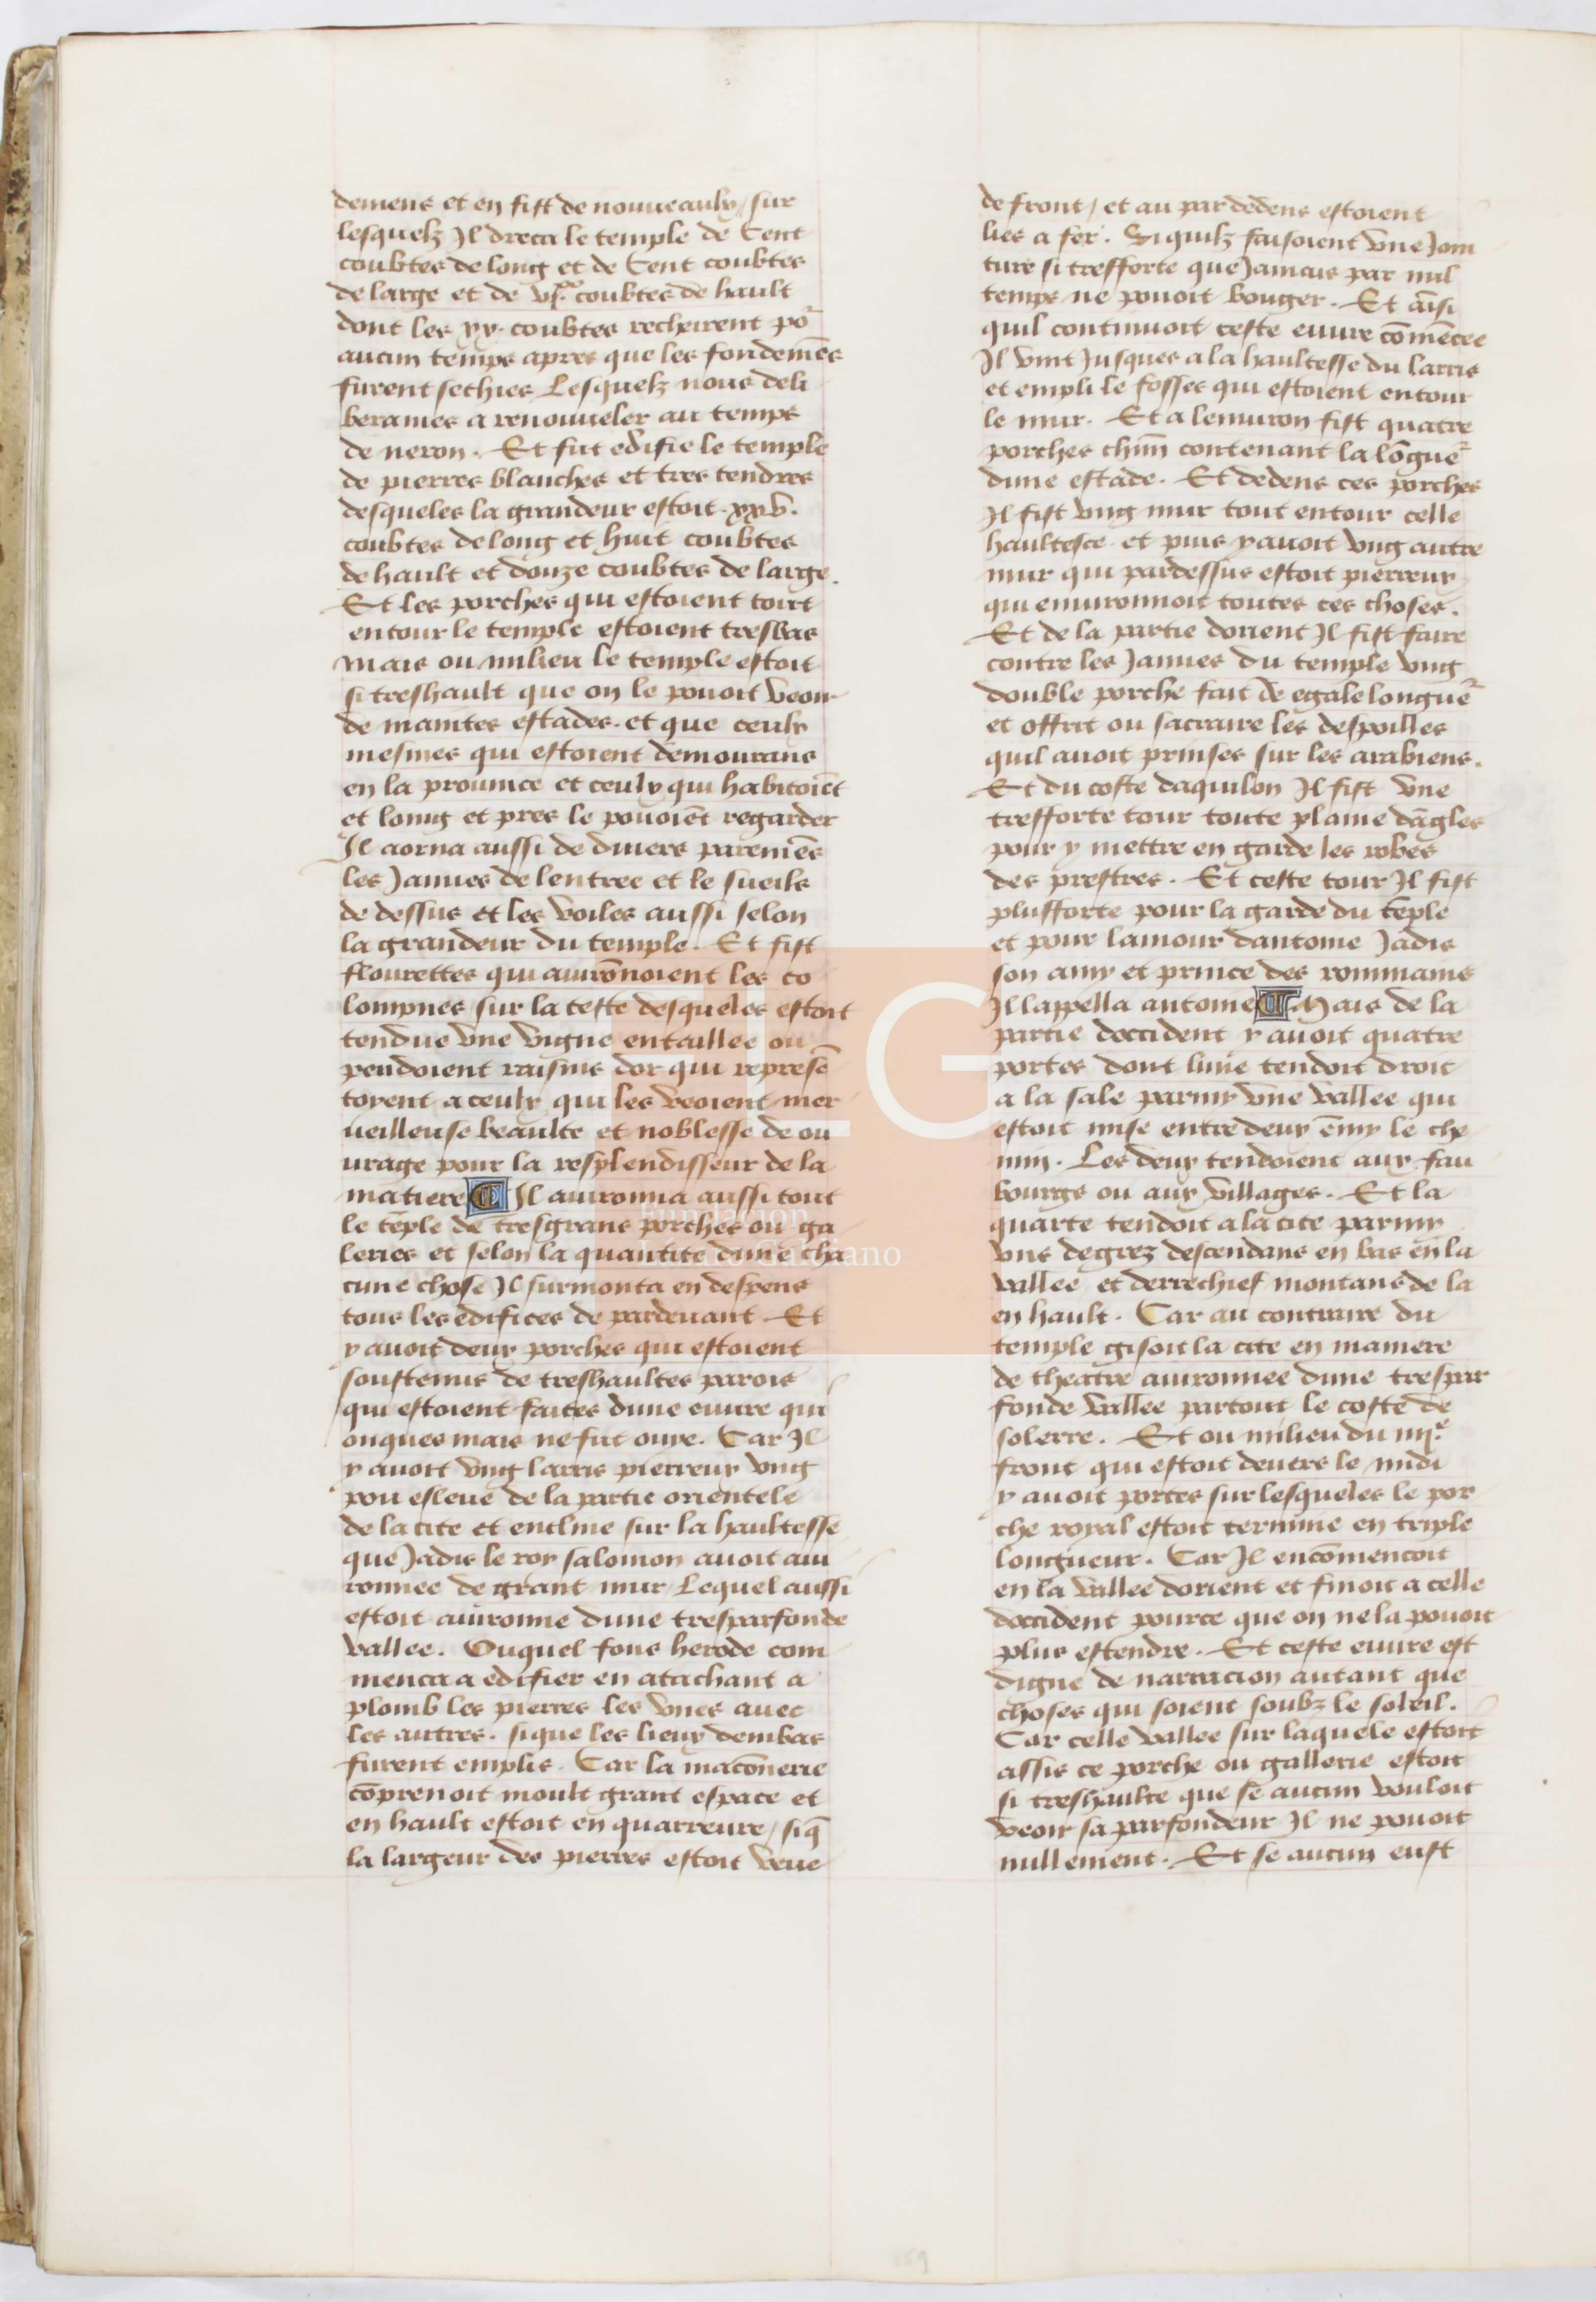 demens et en fist de nouueaulx / sur
lesquelz Il dreca le temple de Cent
coubtes de long et de Cent coubtes
de large et de vjxx coubtes de hault
dont les xx. coubtes recheirent po᷑
aucun temps apres que les fondemēs
furent sechies Lesquelz nous deli
berames a renouueler au temps
de neron. Et fut edifie le temple
de pierres blanches et tres tendres
desqueles la grandeur estoit .xxv.
coubtes de long et huit coubtes
de hault et douze coubtes de large.
Et les porches qui estoient tout
entour le temple estoient tresbas
mais ou milieu le temple estoit
si treshault que on le pouoit veoir
de maintes estades. et que ceulx
mesmes qui estoient demourans
en la prouince et ceulx qui habitoiēt
et loing et pres le pouoiēt regarder
Il aorna aussi de diuers paremēs
les Januers de lentree et le sueils
de dessus et les voiles aussi selon
la grandeur du temple. Et fist
flourettes qui auirōnoient les co
lompnes sur la teste desqueles estoit
tendue vne vigne entaillee ou
pendoient raisins dor qui represē
toyent a ceulx qui les veoient mer
ueilleuse beaulte et noblesse de ou
urage pour la resplendisseur de la
matiere ¶ Il auironna aussi tout
le tēple de tresgrans porches ou ga
leries et selon la quantite dune cha
cune chose Il surmonta en despens
tous les edifices de pardeuant. Et
y auoit deux porches qui estoient
soustenus de treshaultes parois
qui estoient faites dune euure qui
onques mais ne fut ouye. Car Il
y auoit vng larris pierreux vng
pou esleue de la partie orientele
de la cite et encline sur la haultesse
que Jadis le roy salomon auoit aui
ronnee de grant mur / Lequel aussi
estoit auironne dune tresparfonde
vallee. Ouquel fons herode com
menca a edifier en atachant a
plomb les pierres les vnes auec
les autres. sique les lieux dembas
furent emplis. Car la macōnerie
cōprenoit moult grant espace et
en hault estoit en quarreure / siq̄
la largeur des pierres estoit veue
de front / et au par dedens estoient
lies a fer. Si quilz faisoient vne Join
ture si tresforte que Jamais par nul
temps ne pouoit bouger. Et aīsi
quil continuoit ceste euure cōmēcee
Il vint Jusques a la haultesse du larris
et empli le fosses qui estoient entour
le mur. Et a lenuiron fist quatre
porches chūn contenant la lōgue᷑
dune estade. Et dedens ces porches
Il fist vng mur tout entour celle
haultesce. et puis y auoit vng autre
mur qui pardessus estoit pierreux
qui enuironnoit toutes ces choses.
Et de la partie dorient Il fist faire
contre les Januers du temple vng
double porche fait de egale longue᷑
et offrit ou sacraire les despoilles
quil auoit prinses sur les arabiens.
Et du coste daquilon Il fist vne
tresforte tour toute plaine dāgles
pour y mettre en garde les robes
des prestres. Et ceste tour Il fist
plusforte pour la garde du tēple
et pour lamour dantoine Jadis
son amy et prince des rommains
Il lappella antoine ¶ Mais de la
partie doccident y auoit quatre
portes dont lune tendoit droit
a la sale parmy vne vallee qui
estoit mise entre deux ēmy le che
min. Les deux tendoient aux fau
bourgs ou aux villages. Et la
quarte tendoit a la cite parmy
vns degrez descendans en bas en la
vallee et derrechief montans de la
en hault. Car au contraire du
temple gisoit la cite en maniere
de theatre auironnee dune trespar
fonde vallee partout le coste de
solerre. Et ou milieu du iiij.e
front qui estoit deuers le midi
y auoit portes sur lesqueles le por
che royal estoit termine en triple
longueur. Car Il encōmencoit
en la vallee dorient et finoit a celle
doccident pource que on ne la pouoit
plus estendre. Et ceste euure est
digne de narracion autant que
choses qui soient soubz le soleil.
Car celle vallee sur laquele estoit
assis ce porche ou gallerie estoit
si treshaulte que se aucun vouloit
veoir sa parfondeur Il ne pouoit
nullement. Et se aucun eust
FLG
Fundación
Lázaro Galdiano
169